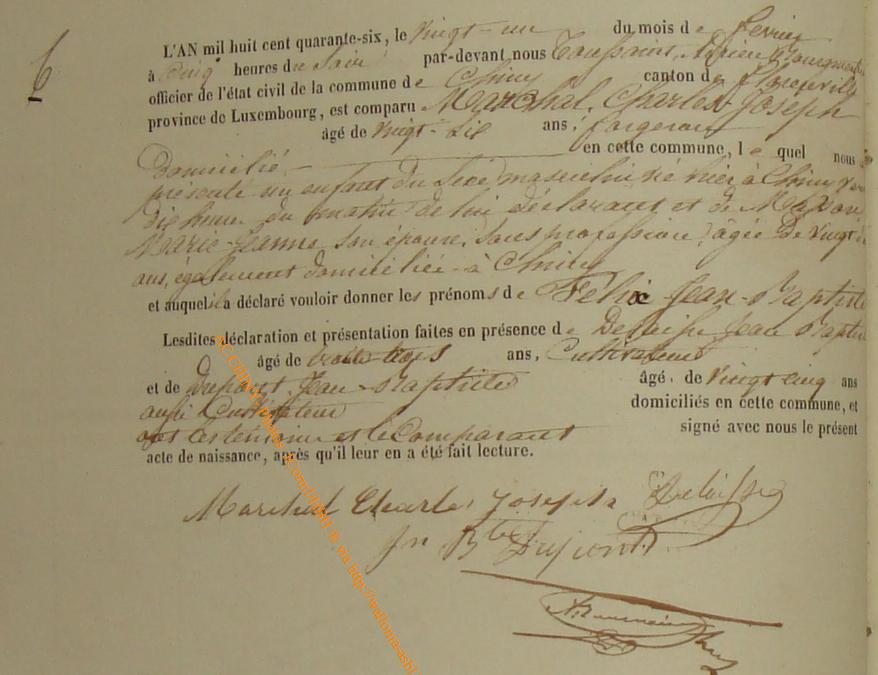 6
L'AN mil huit cent quarante-six, le vingt-un du mois de fevrier
à cinq heures du soir par-devant nous Toussaint, Adrien
officier de l'état civil de la commune de Chiny canton de Florenville
province de Luxembourg, est comparu Maréchal, Charles Joseph
âgé de vingt-six ans, forgeron
en cette commune, le quel nous
domicilié
présenté un enfant du sexe masculin né hier à Chiny vers
dix heures du matin de lui déclarant et de
Marie-Jeanne son épouse, sans profession, âgée de vingt
ans, également domiciliée à Chiny
et auquel il a déclaré vouloir donner les prénoms de Félix Jean-Baptiste
Lesdites déclaration et présentation faites en présence de Jean Baptiste
âgé de trente-trois ans, Cultivateur
et de Dupont Jean-Baptiste âgé de vingt cinq ans
aussi Cultivateur domiciliés en cette commune, et
les témoins et le Comparant signé avec nous le présent
acte de naissance, après qu'il leur en a été fait lecture.
Marechal Charles Joseph
Jn Bte Dupont